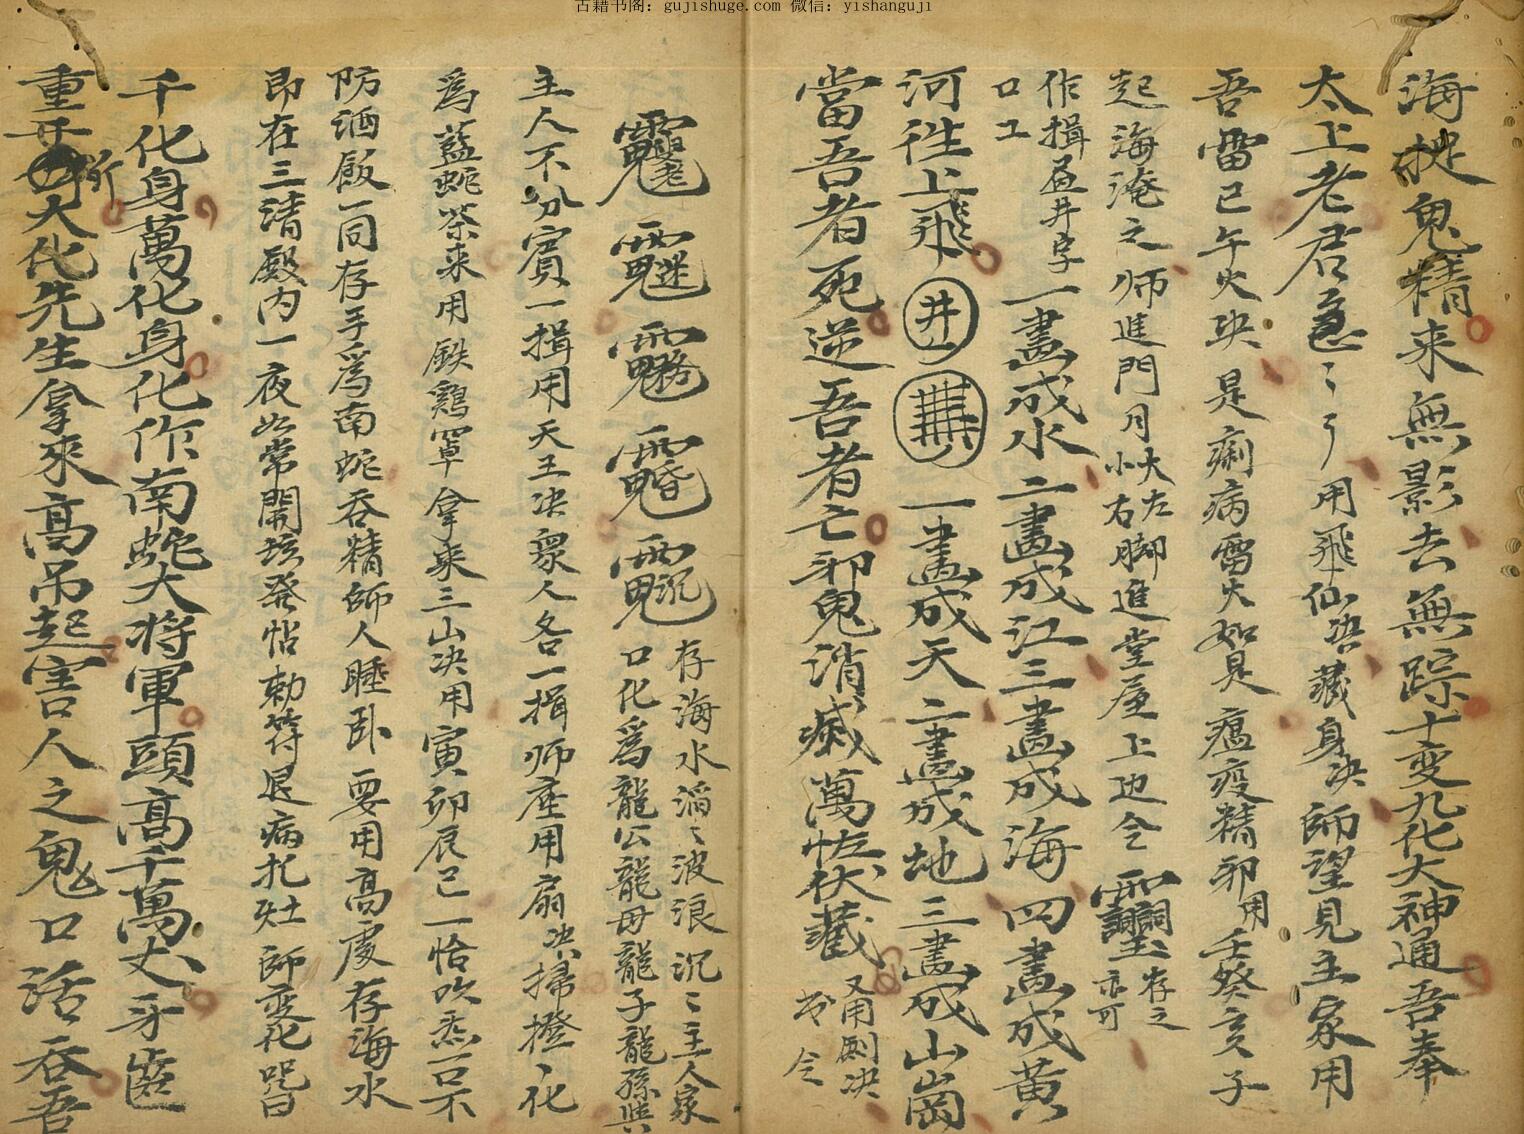 古籍书阁：gujishuge.com 微信：yishanguji
海捉鬼精来無影去無踪十变九化大神通吾奉
太上老君急〻 用飛仙决藏身决師望見主家用
吾雷巳午火决是痢病雷火如是瘟疫精邪用壬癸亥子
起海淹之师進門月大左小右脚進堂屋上边令 存之亦可
作揖画井字口工一畫成水二畫成江三畫成海四畫成黄
河徃上飛 井 一畫成天二畫成地三畫成山崗
當吾者死逆吾者亡邪鬼消滅萬怪伏藏又用剛决 令
存海水滔〻波浪沉〻主人家
口化為龍公龍母龍子龍孫與
主人不分賓一揖用天王决衆人各一揖师座用扇决掃撜〻化
為藍蛇茶来用鉄鷄罩拿来三山决用寅卯辰巳一恰吹炁一口不
防酒飯一同存手為南蛇吞精師人睡卧要用高處存海水
即在三清殿内一夜如常開坛發帖勅符退病扎灶師变化咒曰
千化身萬化身化作南蛇大将軍頭髙千萬丈牙齒
重千斤大化先生拿來高吊起害人之鬼口活吞吾